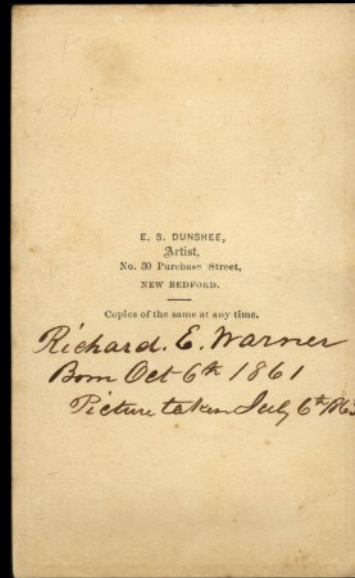 E. S. DUNSHEE,
Artist,
No. 30 Purchase Street,
NEW BEDFORD.
Copies of the same at any time.
Richard. E. Warner
Born Oct 6th 1861
Picture taken July 6th 1863